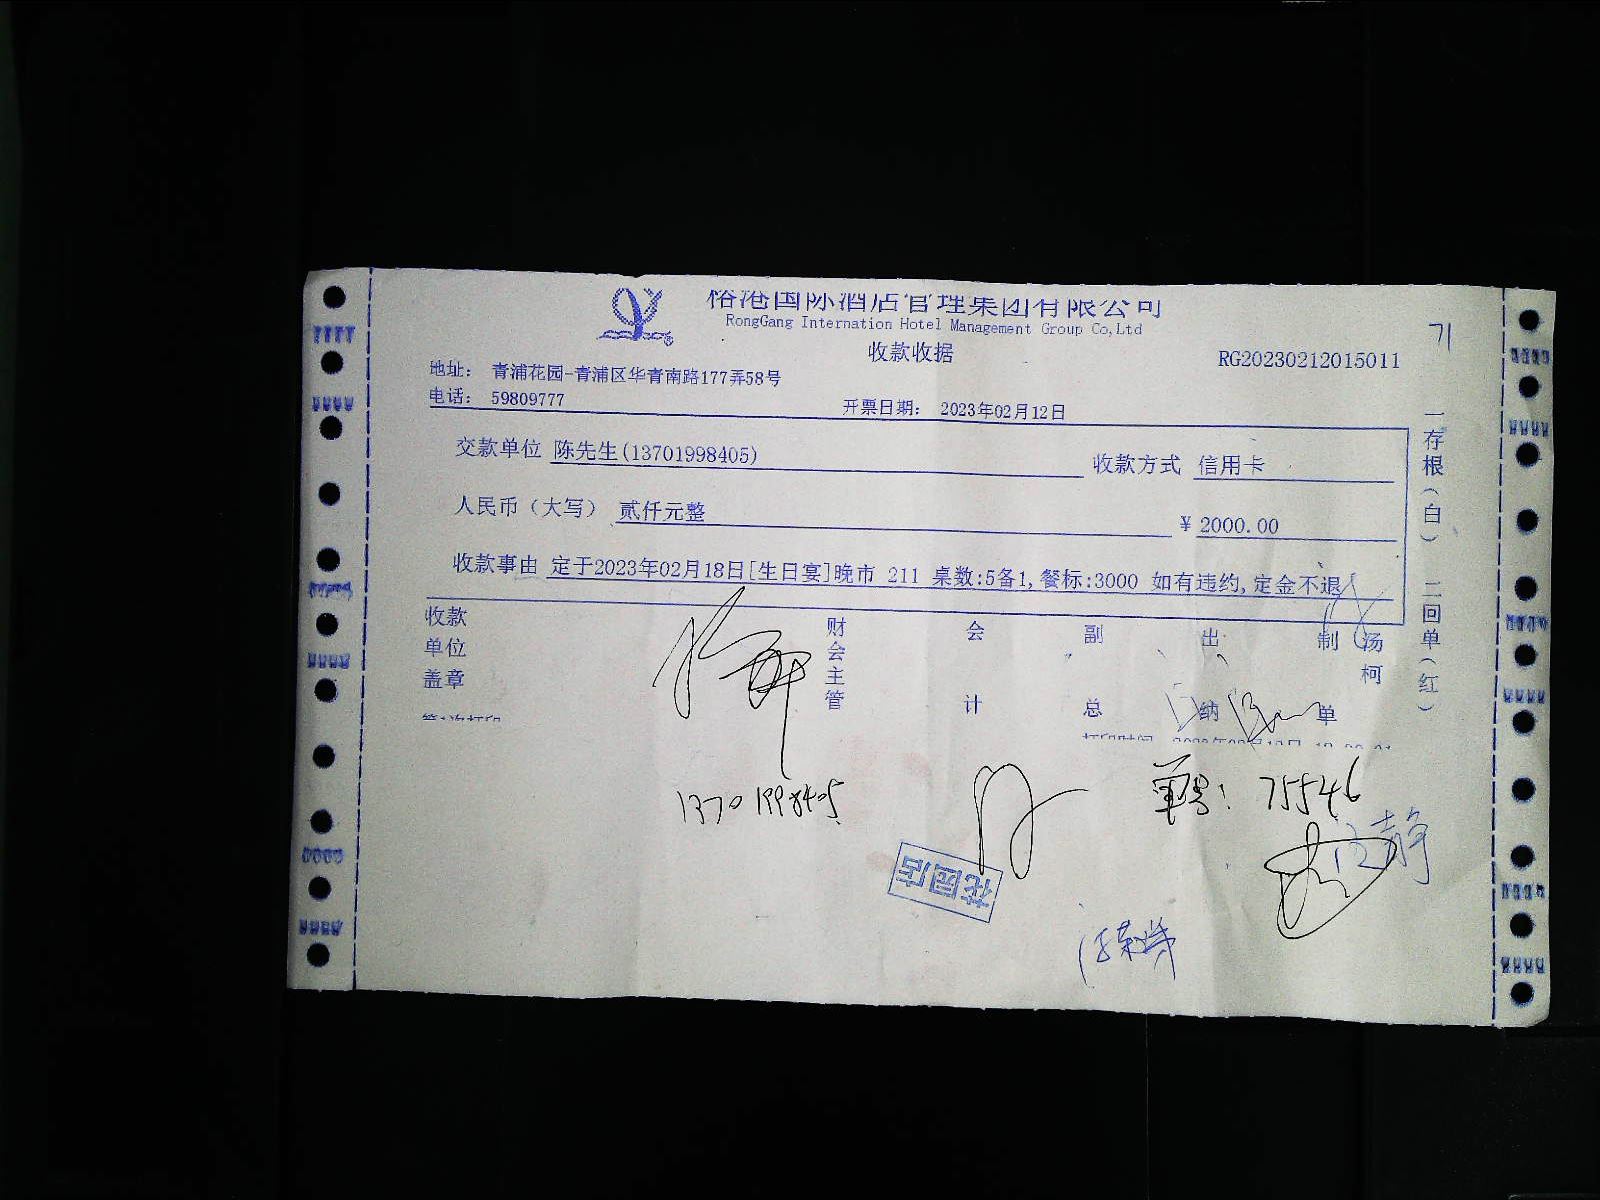 榕港国际酒店管理集团有限公司
RongGang Internation Hotel Management Group Co,Ltd
收款收据
RG20230212015011
71
地址： 青浦花园-青浦区华青南路177弄58号
电话： 59809777
开票日期： 2023年02月12日
交款单位 陈先生(13701998405)
收款方式 信用卡
人民币（大写） 贰仟元整
¥ 2000.00
收款事由 定于2023年02月18日[生日宴]晚市 211 桌数:5备1,餐标:3000 如有违约,定金不退
一存根（白） 二回单（红）
收款单位盖章
财会主管
会计
副总
出纳
制单
汤柯
13701998405
单号: 75546
花园店